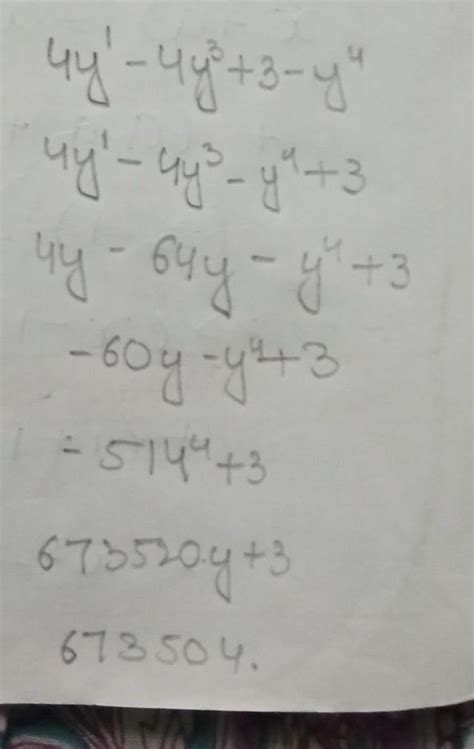 4y¹ - 4y³ + 3 - y⁴
4y¹ - 4y³ - y⁴ + 3
4y - 64y - y⁴ + 3
- 60y - y⁴ + 3
- 514⁴ + 3
673520y + 3
673504.